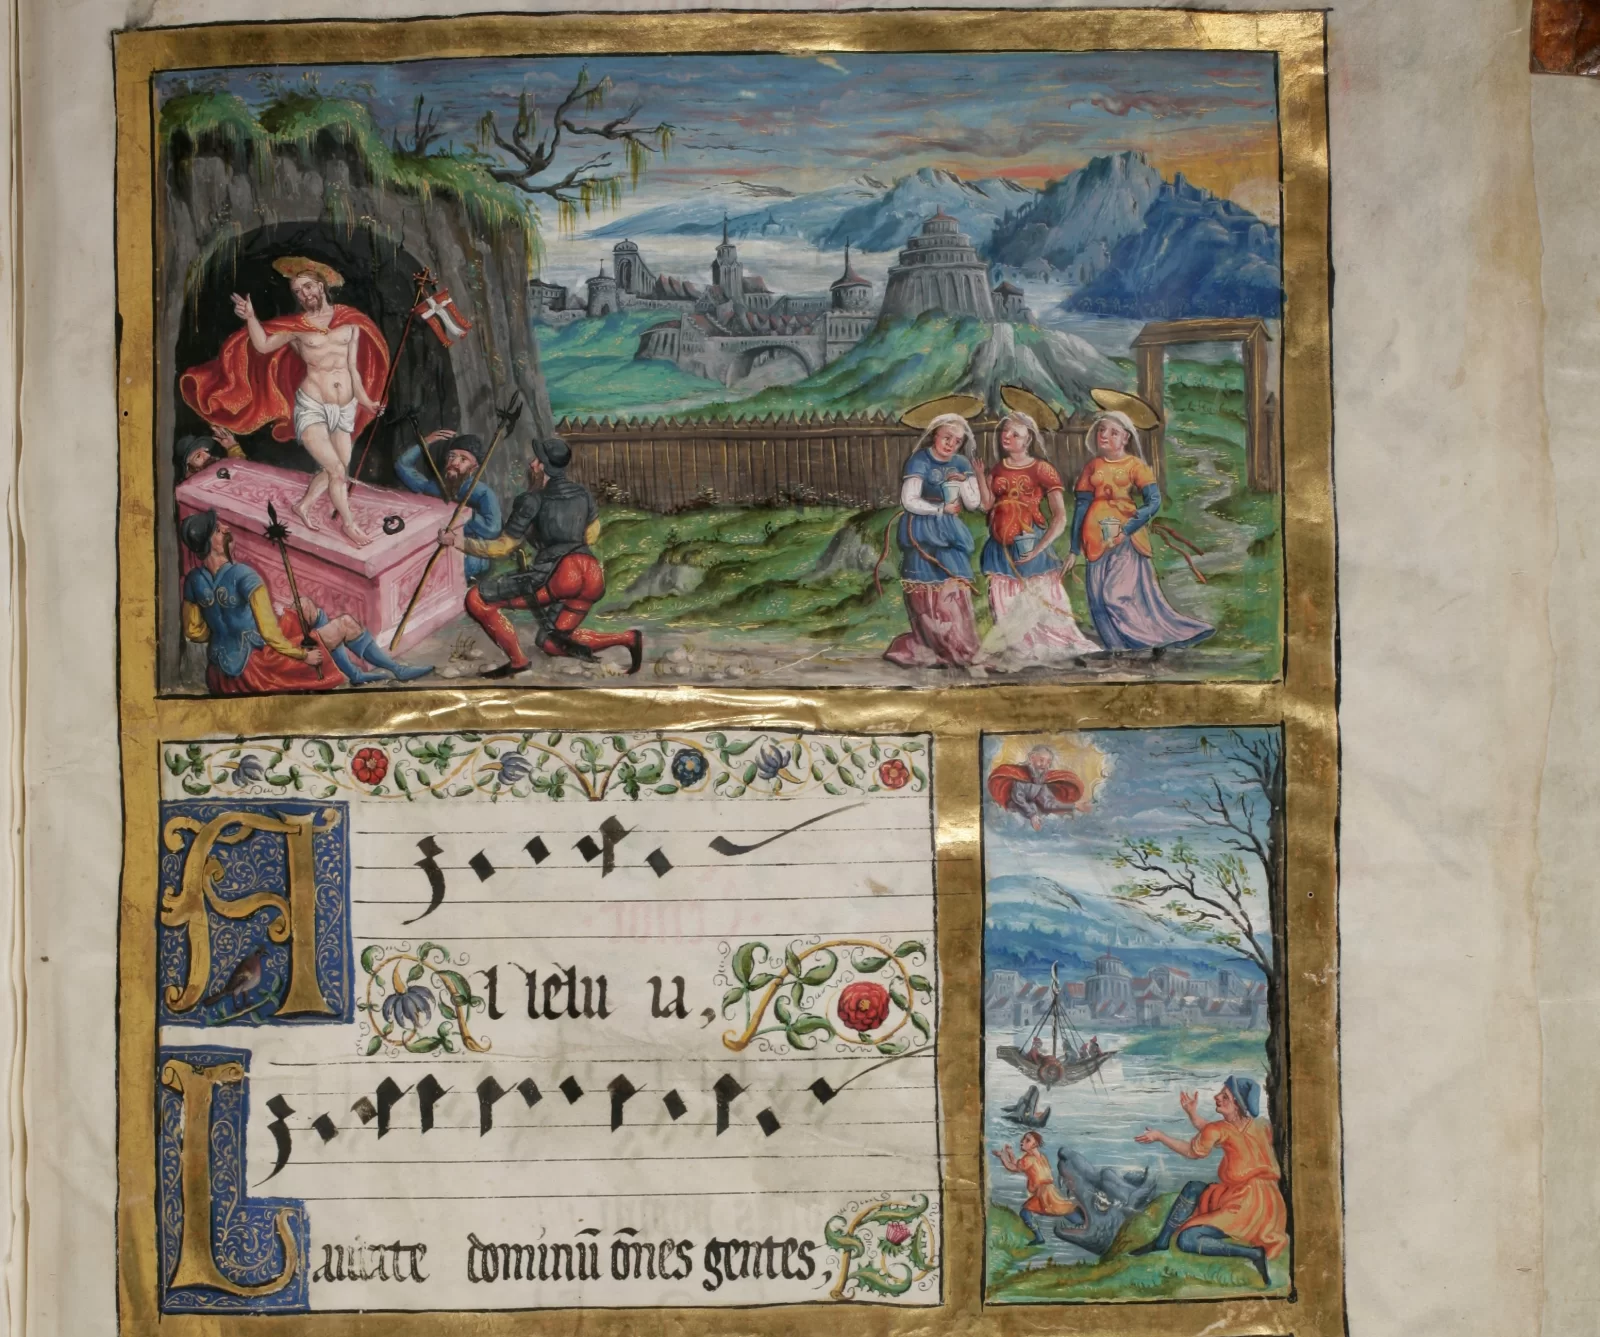 Al lelu ia,
Laudate dominū o̅nes gentes,